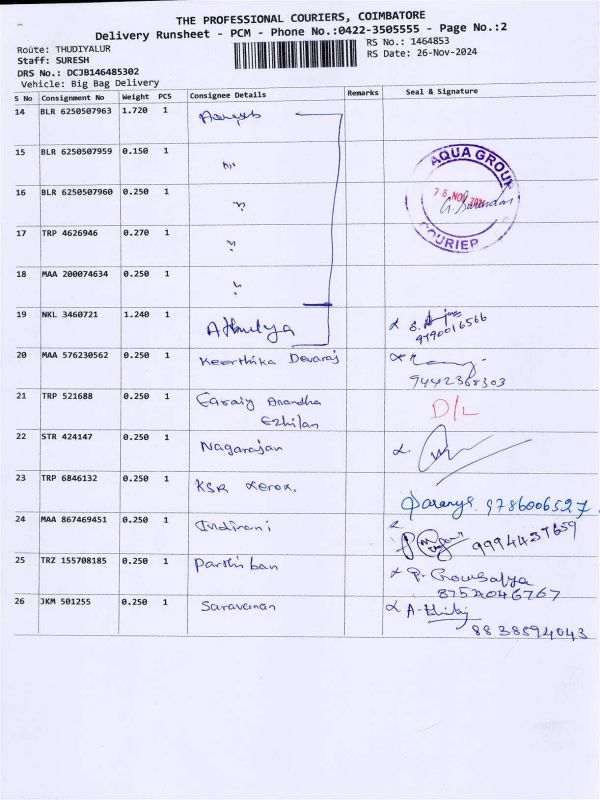 THE PROFESSIONAL COURIERS, COIMBATORE
Delivery Runsheet - PCM - Phone No.:0422-3505555 - Page No.:2
Route: THUDIYALUR
RS No.: 1464853
Staff: SURESH
RS Date: 26-Nov-2024
DRS No.: DCJB146485302
Vehicle: Big Bag Delivery
S No Consignment No Weight PCS Consignee Details Remarks Seal & Signature
14 BLR 6250507963 1.720 1
15 BLR 6250507959 0.150 1
AQUA GROUP
16 BLR 6250507960 0.250 1
NOV
17 TRP 4626946 0.270 1
COURIER
18 MAA 200074634 0.250 1
19 NKL 3460721 1.240 1 Athulya
9790016566
20 MAA 576230562 0.250 1 Keerthika Devaraj
9442368303
21 TRP 521688 0.250 1 Anandha
Ezhilan
D/L
22 STR 424147 0.250 1 Nagarajan
23 TRP 6846132 0.250 1 KSR Xerox.
9786006527
24 MAA 867469451 0.250 1 Indirani
9994437659
25 TRZ 155708185 0.250 1 Parthiban
P. Gowsalya
8752046767
26 JKM 501255 0.250 1 Saravanan
8838594043